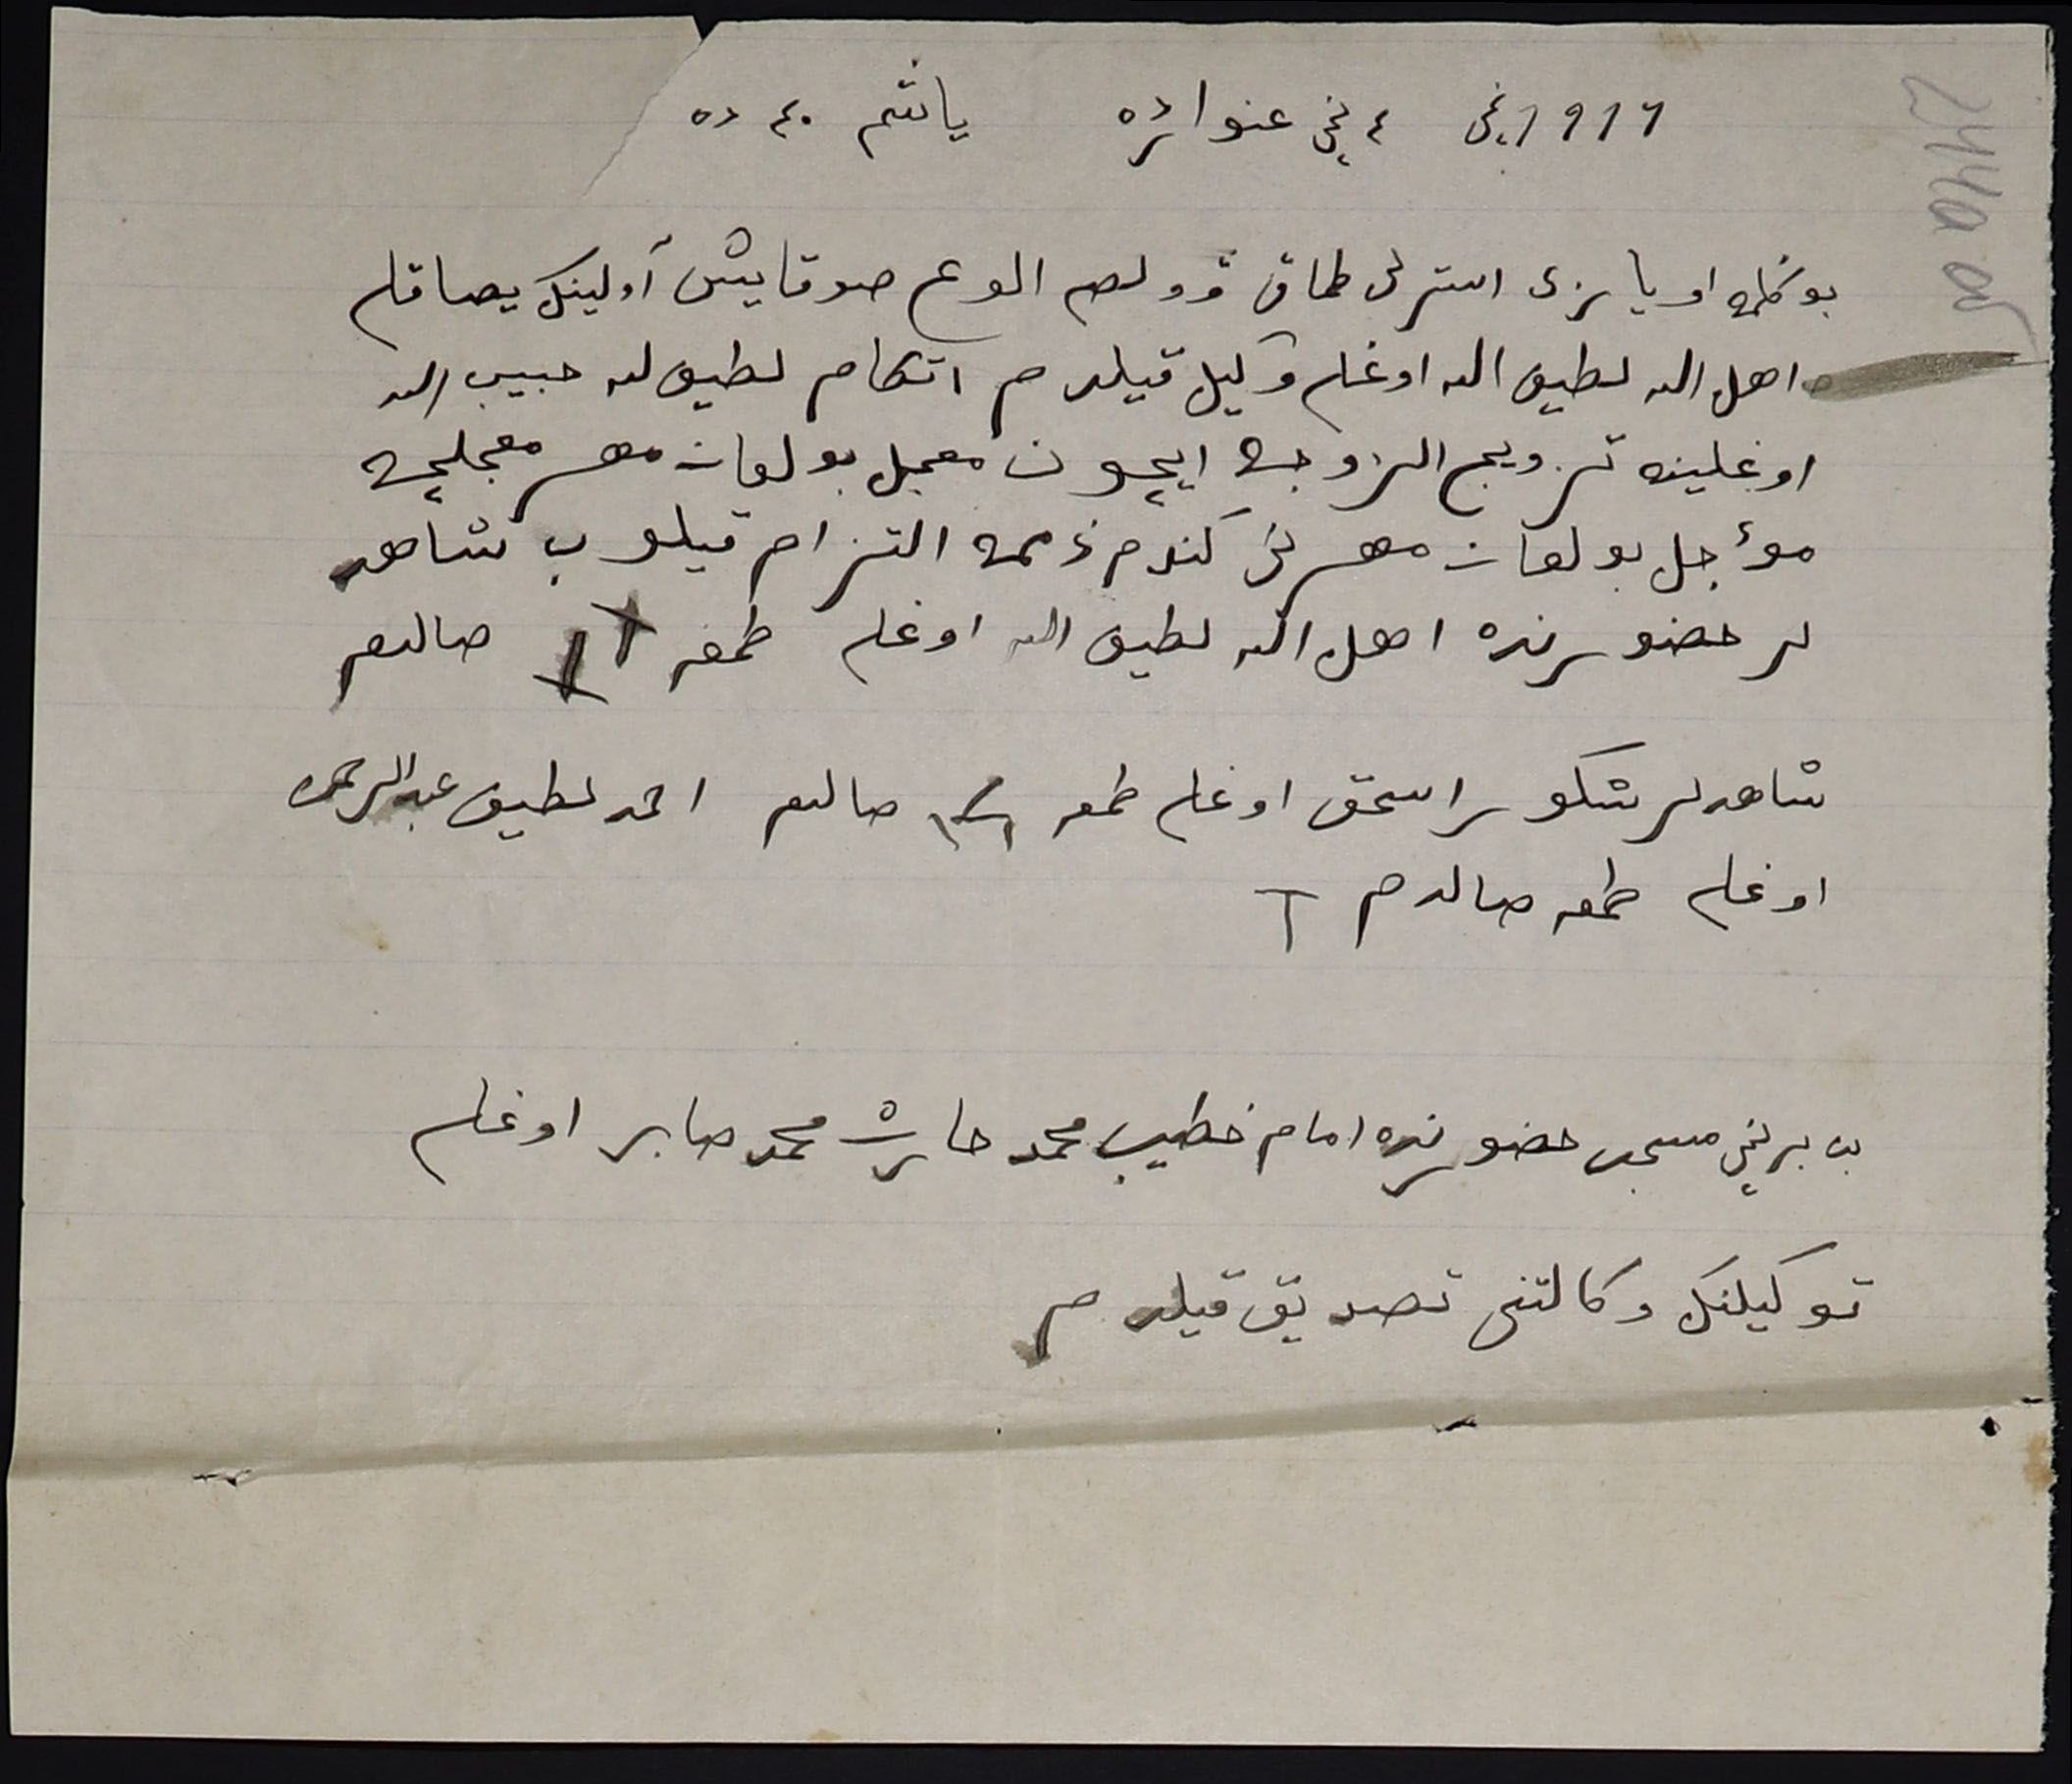 1916 نچی ٤ نچی عنوارده یاشم ٤٠ ده
بو اویازی استرلی طماق الوع صوقایش آولینک یصاقلی
اهل الله لطیف الله اوغلی وکیل قیلدم اتکام لطیف الله حبیب الله
اوغلینه تزویج الزوجه ایچون معجل بولغان مهر معجلیچه
مؤجل بولغان مهرنی کندم ذمه التزام قیلوب شاهد
لر حضورنده اهل الله لطیف الله اوغلی طمغه صالدم
شاهدلر شکور اسحق اوغلی طمغه صالدم احمد لطیف عبدالرحمن
اوغلی طمغه صالدم
برنچی مسجد حضورنده امام خطیب محمد حارث محمد صابر اوغلی
توکیلنک وکالتنی تصدیق قیلدم
244a об